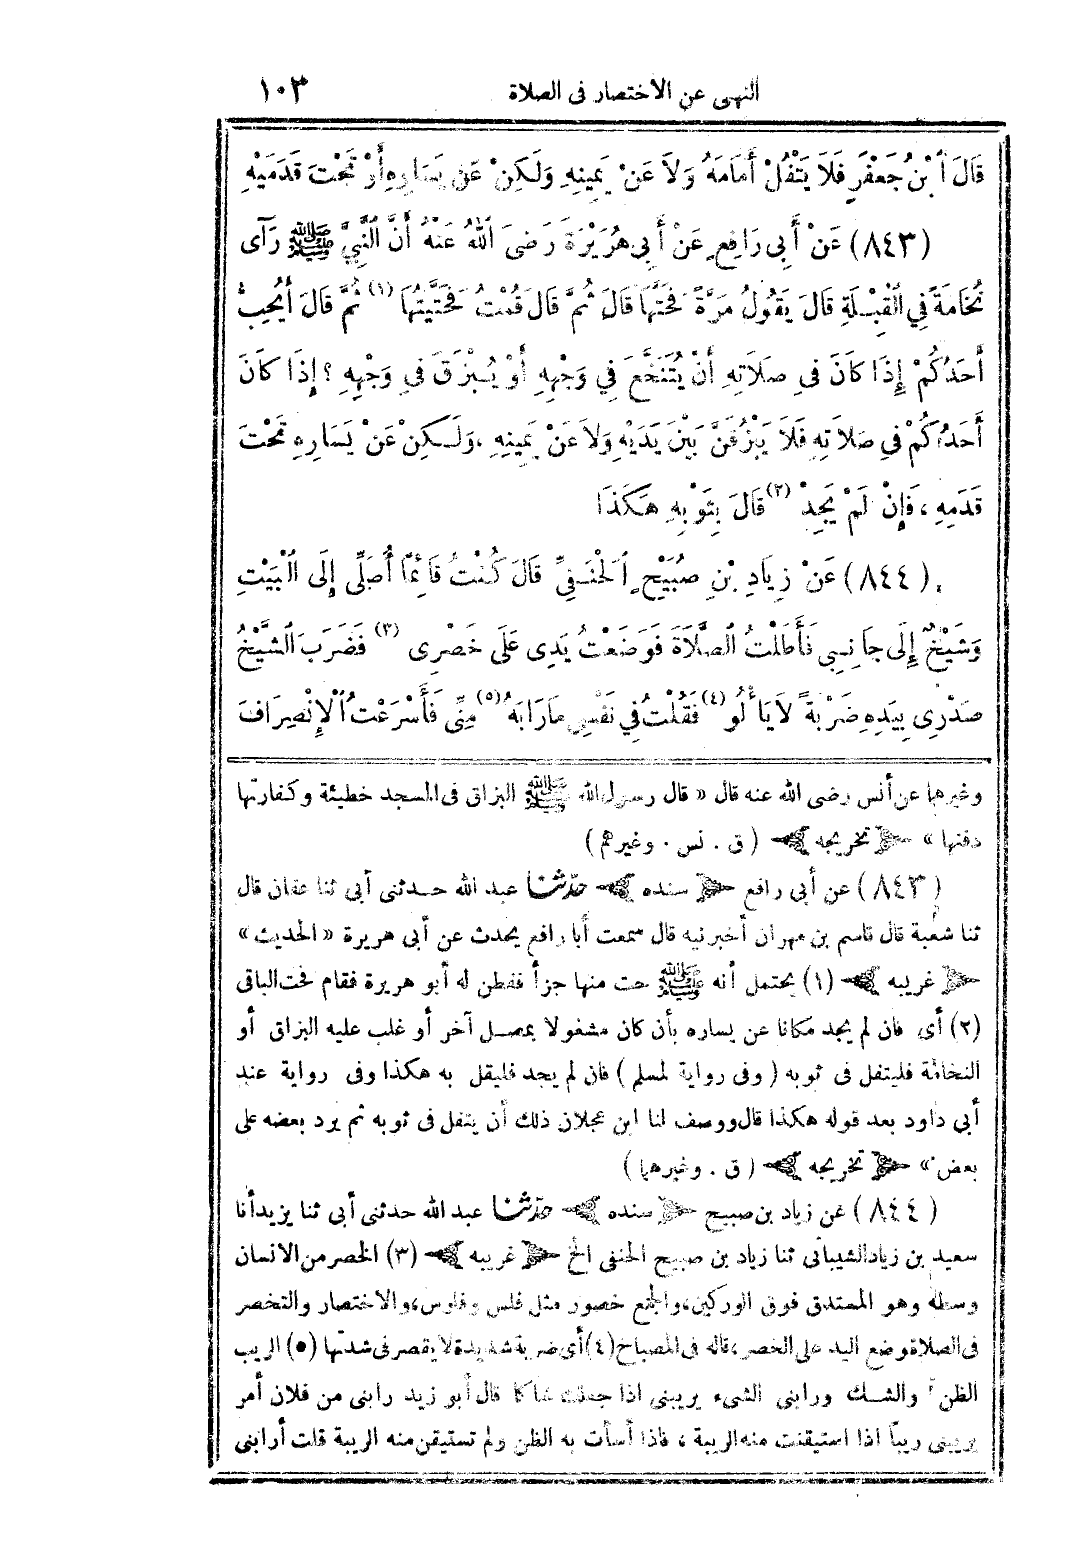 النهى عن الاختصار فى الصلاة ١٠٣
قَالَ ٱبْنُ جَعْفَرٍ فَلَا يَتْفُلْ أَمَامَهُ وَلاَ عَنْ يَمِينِهِ وَلَكِنْ عَنْ يَسَارِهِ أَوْ تَحْتَ قَدَمَيْهِ
(٨٤٣) عَنْ أَبِى رَافِعٍ عَنْ أَبِى هُرَيْرَةَ رَضِىَ ٱللهُ عَنْهُ أَنَّ ٱلنَّبِيَّ ﷺ رَآى
نُخَامَةً فِي ٱلْقِبْلَةِ قَالَ يَقُولُ مَرَّةً فَحَتَّهَا قَالَ ثُمَّ قَالَ قُمْتُ فَحَتَّيْتُهَا (١) ثُمَّ قَالَ أَيُحِبُّ
أَحَدُكُمْ إِذَا كَانَ فِى صَلَاتِهِ أَنْ يُتَنَخَّعَ فِي وَجْهِهِ أَوْ يُبْزَقَ فِى وَجْهِهِ ؟ إِذَا كَانَ
أَحَدُكُمْ فِى صَلَاتِهِ فَلَا يَبْزُقَنَّ بَيْنَ يَدَيْهِ وَلاَ عَنْ يَمِينِهِ ، وَلَكِنْ عَنْ يَسَارِهِ تَحْتَ
قَدَمِهِ ، فَإِنْ لَمْ يَجِدْ (٢) قَالَ بِثَوْبِهِ هَكَذَا
(٨٤٤) عَنْ زِيَادِ بْنِ صُبَيْحٍ ٱلْحَنَفِىِّ قَالَ كُنْتُ قَائِمًا أُصَلِّى إِلَى الْبَيْتِ
وَشَيْخٌ إِلَى جَانِبِى فَأَطَلْتُ الصَّلَاةَ فَوَضَعْتُ يَدِى عَلَى خَصْرِى (٣) فَضَرَبَ الشَّيْخُ
صَدْرِى بِيَدِهِ ضَرْبَةً لاَ يَأْلُو (٤) فَقُلْتُ فِي نَفْسِى مَا رَابَهُ (٥) مِنِّى فَأَسْرَعْتُ ٱلْإِنْصِرَافَ
وغيرهما عن أنس رضى الله عنه قال « قال رسول الله ﷺ البزاق فى المسجد خطيئة وكفارتها
دفنها » ﴿ تخريجه ﴾ ( ق . نس . وغيرهم )
(٨٤٣) عن أبى رافع ﴿ سنده ﴾ حدّثنا عبد الله حدثنى أبى ثنا عفان قال
ثنا شعبة قال قاسم بن مهران أخبرنيه قال سمعت أبا رافع يحدث عن أبى هريرة « الحديث »
﴿ غريبه ﴾ (١) يحتمل أنه ﷺ حت منها جزأ ففطن له أبو هريرة فقام فحت الباقى
(٢) أى فان لم يجد مكانا عن يساره بأن كان مشغولا بمصل آخر أو غلب عليه البزاق أو
النخامة فليتفل فى ثوبه ( وفى رواية لمسلم ) فان لم يجد فليقل به هكذا وفى رواية عند
أبى داود بعد قوله هكذا قال ووصف لنا ابن عجلان ذلك أن يتفل فى ثوبه ثم يرد بعضه على
بعض » ﴿ تخريجه ﴾ ( ق . وغيرهما )
(٨٤٤) عن زياد بن صبيح ﴿ سنده ﴾ حدّثنا عبد الله حدثنى أبى ثنا يزيد أنا
سعيد بن زياد الشيبانى ثنا زياد بن صبيح الحنفى الخ ﴿ غريبه ﴾ (٣) الخصر من الانسان
وسطه وهو المستدق فوق الوركين، والجمع خصور مثل فلس وفلوس، والاختصار والتخصر
فى الصلاة وضع اليد على الخصر، قاله فى المصباح (٤) أى ضربة شديدة لا يقصر فى شدتها (٥) الريب
الظن والشك ورابنى الشىء يريبنى اذا جعلك شاكا قال أبو زيد رابنى من فلان أمر
يريبنى ريباً اذا استيقنت منه الريبة ، فاذا أسأت به الظن ولم تستيقن منه الريبة قلت أرابنى